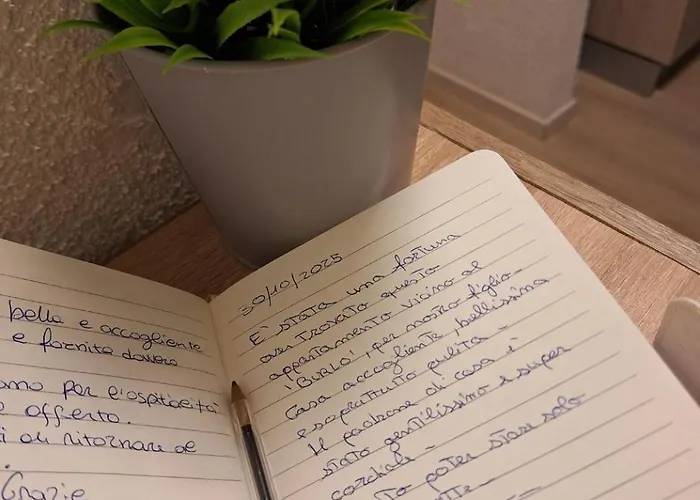 bella e accogliente
e fornita davvero
amo per l'ospitalità
e offerto.
i di ritornare al
Grazie
30/10/2025
E' stata una fortuna
aver trovato questo
appartamento vicino al
"Burlo", per nostro figlio-
Casa accogliente, bellissima
e soprattutto pulita -
Il padrone di casa è
stato gentilissimo e super
cordiale -
to poter stare solo